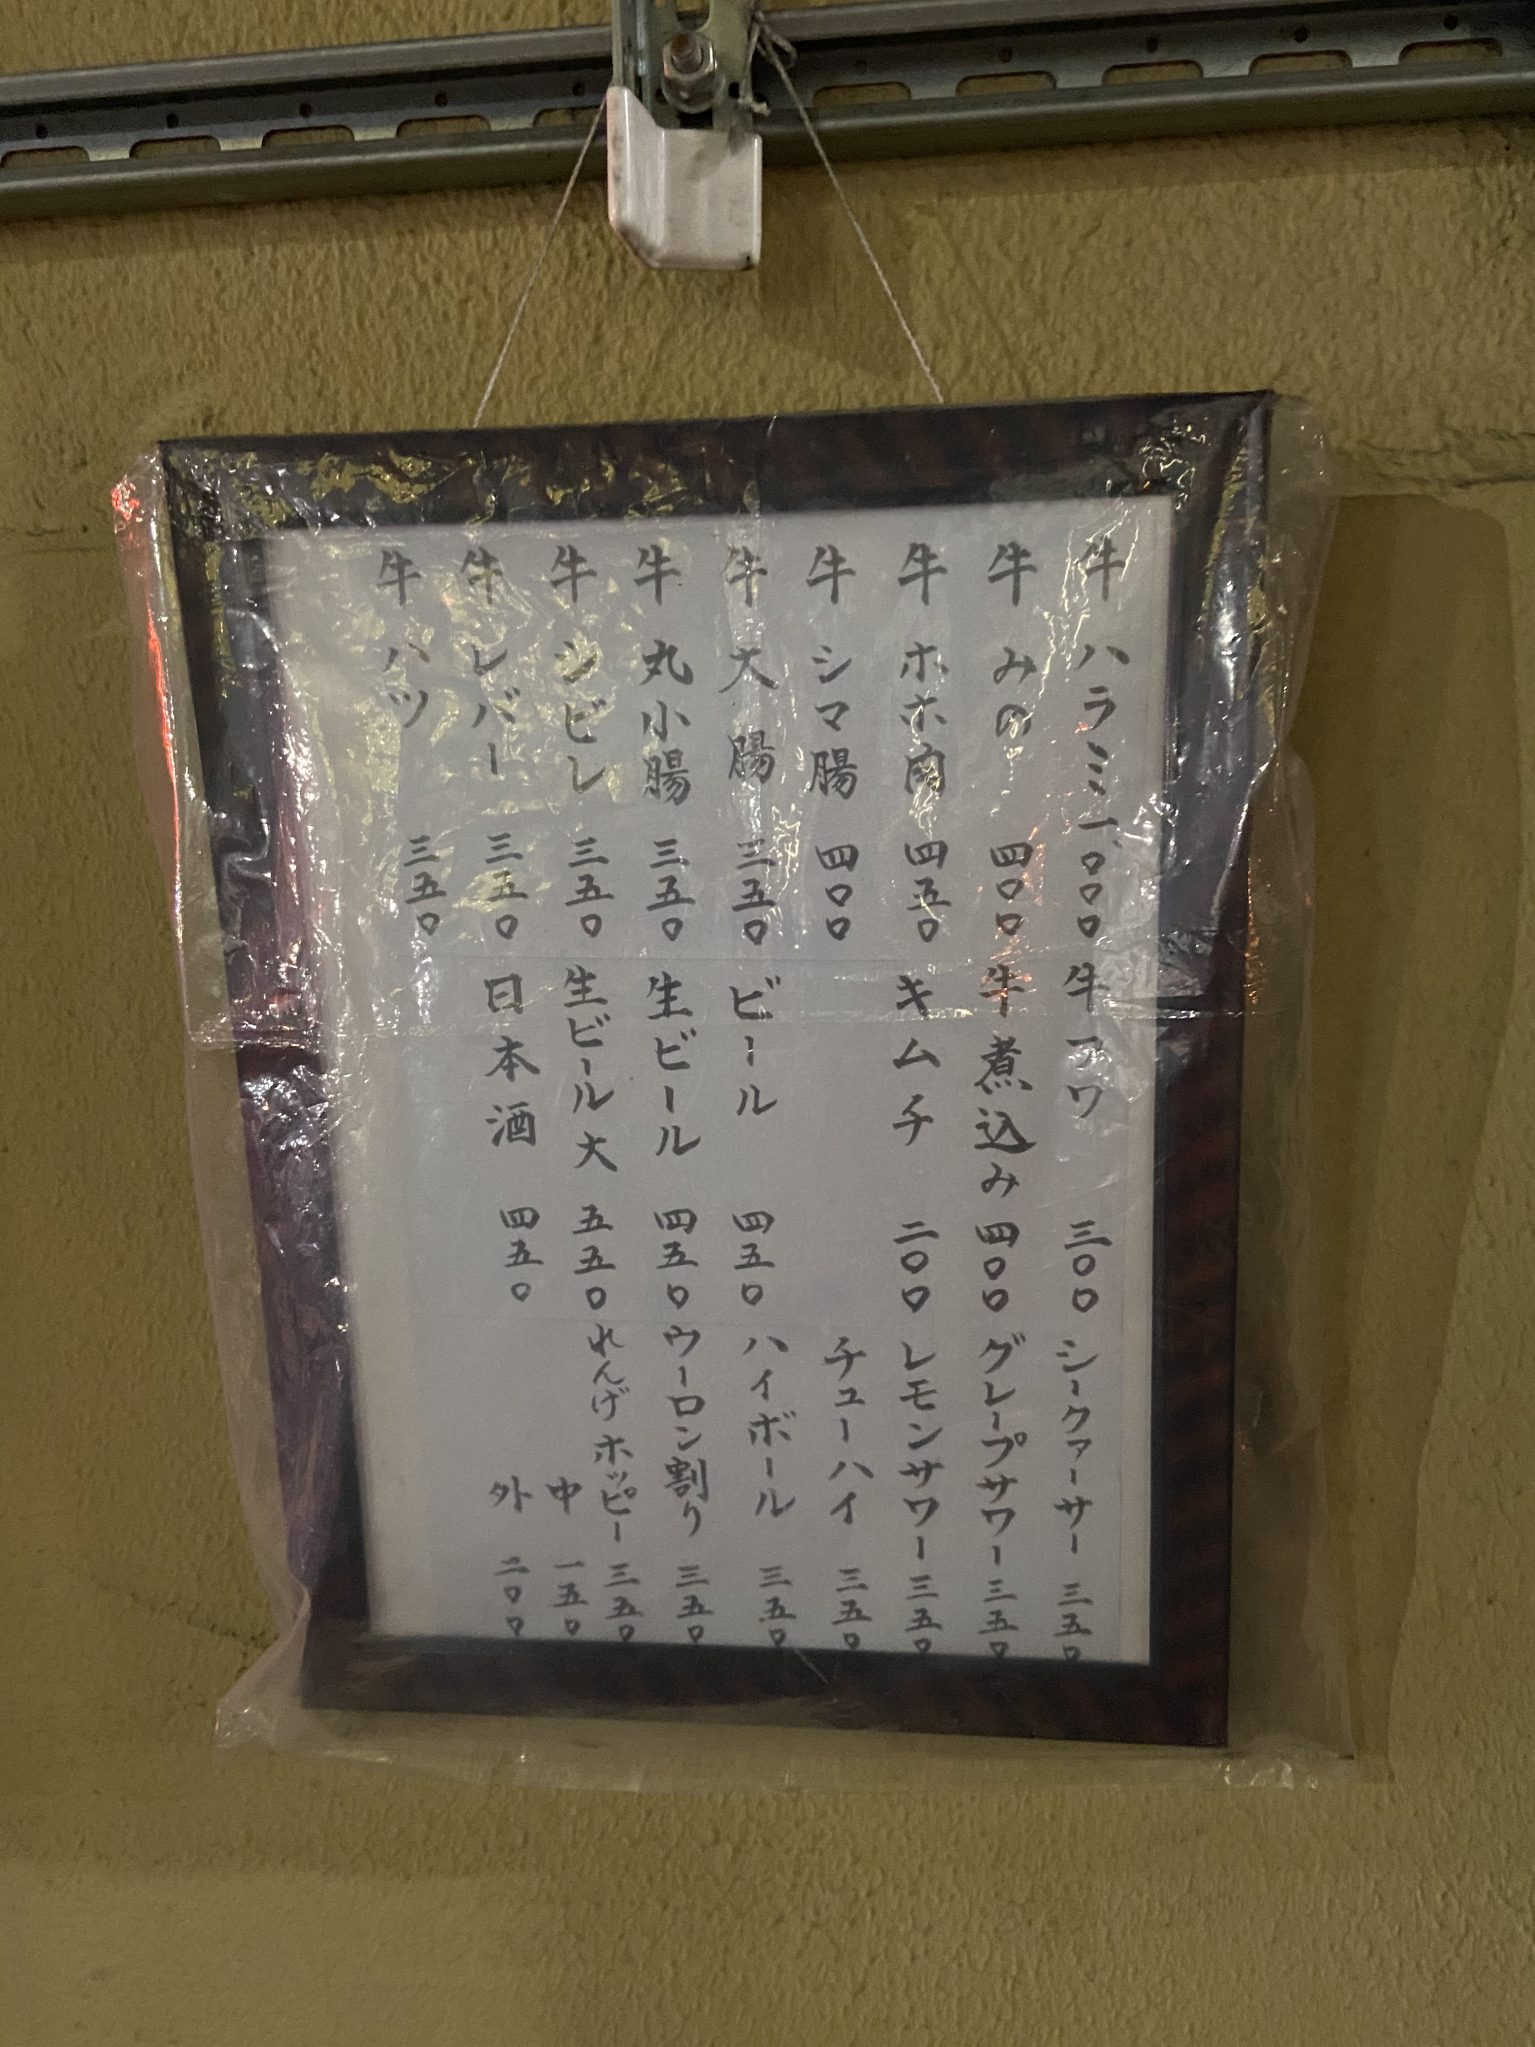 牛ハラミ 一〇〇〇
牛みの 四〇〇
牛ホホ肉 四五〇
牛シマ腸 四〇〇
牛大腸 三五〇
牛丸小腸 三五〇
牛シビレ 三五〇
牛レバー 三五〇
牛ハツ 三五〇
牛フワ 三〇〇
牛煮込み 四〇〇
キムチ 二〇〇
ビール 四五〇
生ビール 四五〇
生ビール大 五五〇
日本酒 四五〇
シークァーサー 三五〇
グレープサワー 三五〇
レモンサワー 三五〇
チューハイ 三五〇
ハイボール 三五〇
ウーロン割り 三五〇
れんげホッピー 三五〇
中 一五〇
外 二〇〇